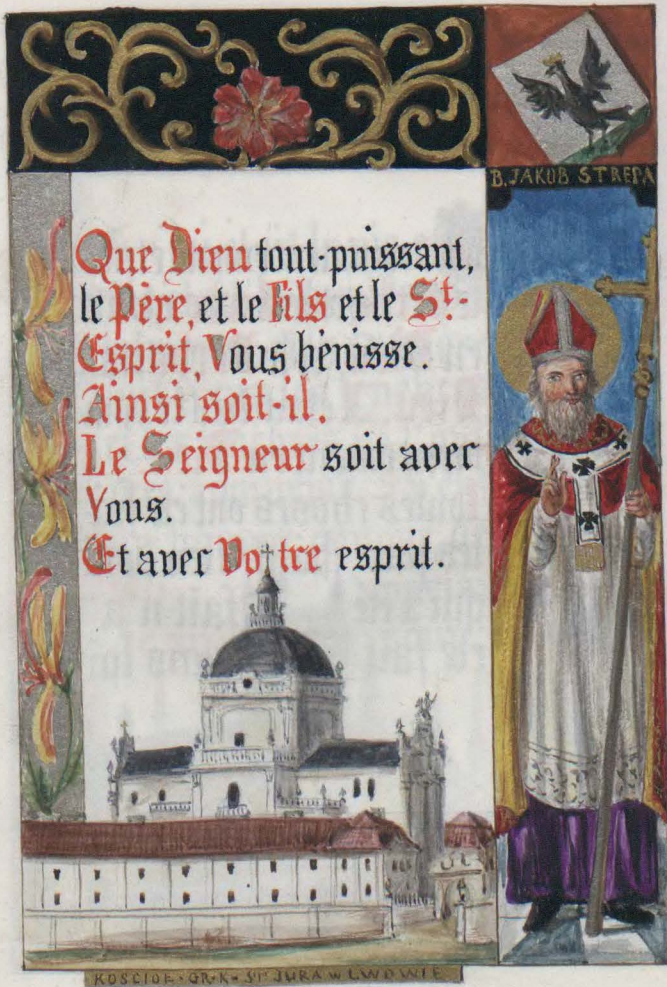 B. JAKUB STREPA
Que Dieu tout-puissant,
le Père, et le Fils et le St.-
Esprit, Vous bénisse.
Ainsi soit-il.
Le Seigneur soit avec
Vous.
Et avec Votre esprit.
KOSCIOŁ · GR · K · ST JURA w LWOWIE